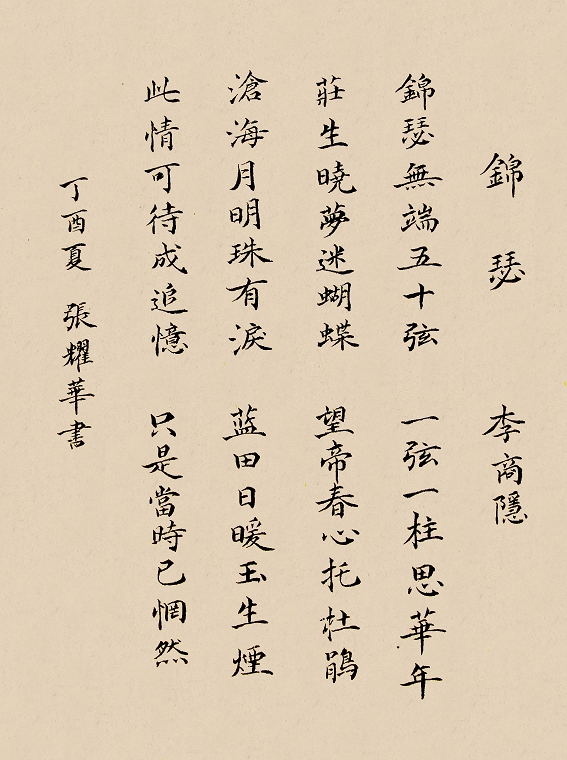 錦瑟 李商隱
錦瑟無端五十弦 一弦一柱思華年
莊生曉夢迷蝴蝶 望帝春心托杜鵑
滄海月明珠有淚 蓝田日暖玉生煙
此情可待成追憶 只是當時已惘然
丁酉夏 張耀華書